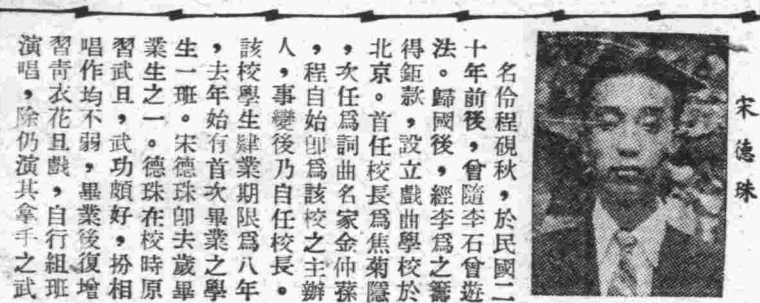 宋德珠
名伶程硯秋，於民國二
十年前後，曾隨李石曾遊
法。歸國後，經李爲之籌
得鉅款，設立戲曲學校於
北京。首任校長爲焦菊隱
，次任爲詞曲名家金仲蓀
，程自始卽爲該校之主辦
人，事變後乃自任校長。
該校學生肄業期限爲八年
，去年始有首次畢業之學
生一班。宋德珠卽去歲畢
業生之一。德珠在校時原
習武旦，武功頗好，扮相
唱作均不弱，畢業後復增
習靑衣花旦戲，自行組班
演唱，除仍演其拿手之武